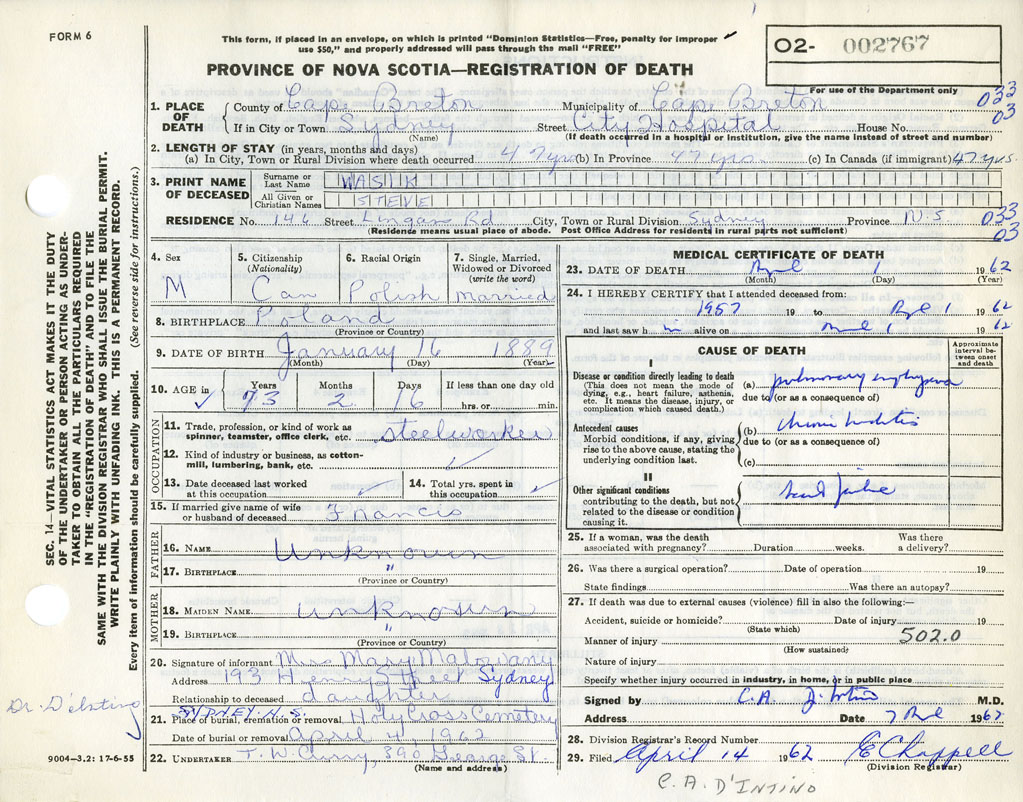 FORM 6
This form, if placed in an envelope, on which is printed "Dominion Statistics—Free, penalty for improper
use $50," and properly addressed will pass through the mail "FREE"
O2- 002767
PROVINCE OF NOVA SCOTIA—REGISTRATION OF DEATH
For use of the Department only
1. PLACE OF DEATH
County of Cape Breton Municipality of Cape Breton 033
If in City or Town Sydney Street City Hospital House No. 03
(Name) (If death occurred in a hospital or institution, give the name instead of street and number)
2. LENGTH OF STAY (in years, months and days)
(a) In City, Town or Rural Division where death occurred 47 yrs (b) In Province 47 yrs. (c) In Canada (if immigrant) 47 yrs.
3. PRINT NAME OF DECEASED
Surname or Last Name WASIK
All Given or Christian Names STEVE
RESIDENCE No. 146 Street Lingan Rd City, Town or Rural Division Sydney Province N.S 033
(Residence means usual place of abode. Post Office Address for residents in rural parts not sufficient) 03
4. Sex M
5. Citizenship (Nationality) Can
6. Racial Origin Polish
7. Single, Married, Widowed or Divorced (write the word) married
8. BIRTHPLACE Poland
(Province or Country)
9. DATE OF BIRTH January 16 1889
(Month) (Day) (Year)
10. AGE in Years 73 Months 2 Days 16 If less than one day old hrs. or min.
OCCUPATION
11. Trade, profession, or kind of work as spinner, teamster, office clerk, etc. steelworker
12. Kind of industry or business, as cotton-mill, lumbering, bank, etc.
13. Date deceased last worked at this occupation
14. Total yrs. spent in this occupation
15. If married give name of wife or husband of deceased Francis
FATHER
16. NAME Unknown
17. BIRTHPLACE "
(Province or Country)
MOTHER
18. MAIDEN NAME unknown
19. BIRTHPLACE "
(Province or Country)
20. Signature of informant Miss Mary Malowany
Address 193 Henry Street Sydney
Relationship to deceased daughter
SYDNEY. N.S.
21. Place of burial, cremation or removal Holy Cross Cemetery
Date of burial or removal April 4, 1962
22. UNDERTAKER T. W. Curry, 390 George St.
(Name and address)
MEDICAL CERTIFICATE OF DEATH
23. DATE OF DEATH April 1 1962
(Month) (Day) (Year)
24. I HEREBY CERTIFY that I attended deceased from:
1957 19 to April 1 1962
and last saw h im alive on April 1 1962
CAUSE OF DEATH
Approximate interval between onset and death
I
Disease or condition directly leading to death
(This does not mean the mode of dying, e.g., heart failure, asthenia, etc. It means the disease, injury, or complication which caused death.)
(a) pulmonary emphysema
due to (or as a consequence of)
Antecedent causes
Morbid conditions, if any, giving rise to the above cause, stating the underlying condition last.
(b) chronic bronchitis
due to (or as a consequence of)
(c)
II
Other significant conditions
contributing to the death, but not related to the disease or condition causing it.
heart failure
25. If a woman, was the death associated with pregnancy? Duration weeks. Was there a delivery?
26. Was there a surgical operation? Date of operation 19
State findings Was there an autopsy?
27. If death was due to external causes (violence) fill in also the following:—
Accident, suicide or homicide? Date of injury 19
(State which)
Manner of injury 502.0
(How sustained)
Nature of injury
Specify whether injury occurred in industry, in home, or in public place
Signed by C.A. D'Intino M.D.
Address Date 7 April 1962
28. Division Registrar's Record Number
29. Filed April 14 1962 E Chappell
(Division Registrar)
C. A. D'INTINO
SEC. 14—VITAL STATISTICS ACT MAKES IT THE DUTY
OF THE UNDERTAKER OR PERSON ACTING AS UNDER-
TAKER TO OBTAIN ALL THE PARTICULARS REQUIRED
IN THE "REGISTRATION OF DEATH" AND TO FILE THE
SAME WITH THE DIVISION REGISTRAR WHO SHALL ISSUE THE BURIAL PERMIT.
WRITE PLAINLY WITH UNFADING INK. THIS IS A PERMANENT RECORD.
Every item of information should be carefully supplied. (See reverse side for instructions.)
9004—3.2: 17-6-55